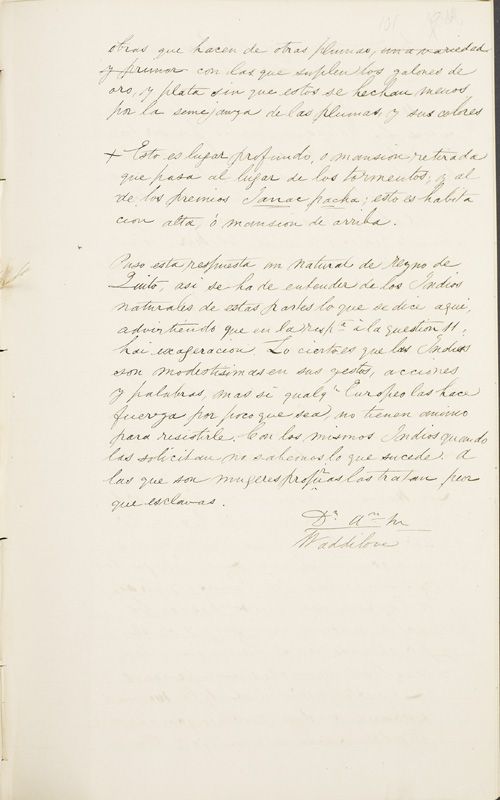 101
obras que hacen de otras plumas, una variedad
y primor con las que suplen los galones de
oro, y plata sin que estos se hechan menos
por la semejanza de las plumas, y sus colores
+ Esto es lugar profundo, o mansion retirada
que pasa al lugar de los tormentos, y al
de los premios Janac pacha; esto es habita
cion alta, ó mansion de arriba.
Puso esta respuesta un natural de Reyno de
Quito, asi se ha de entender de los Indios
naturales de estas partes lo que se dice aqui,
advirtiendo que en la resp.ta á la question 11,
hai exageracion. Lo cierto es que las Indias
son modestisimas en sus gestos, acciones
y palabras, mas si qualq.r Europeo las hace
fuerza por poco que sea, no tienen animo
para resistirle. Con los mismos Indios quando
las solicitan no sabemos lo que sucede. A
las que son mugeres propias las tratan peor
que esclavas.
Waddilove